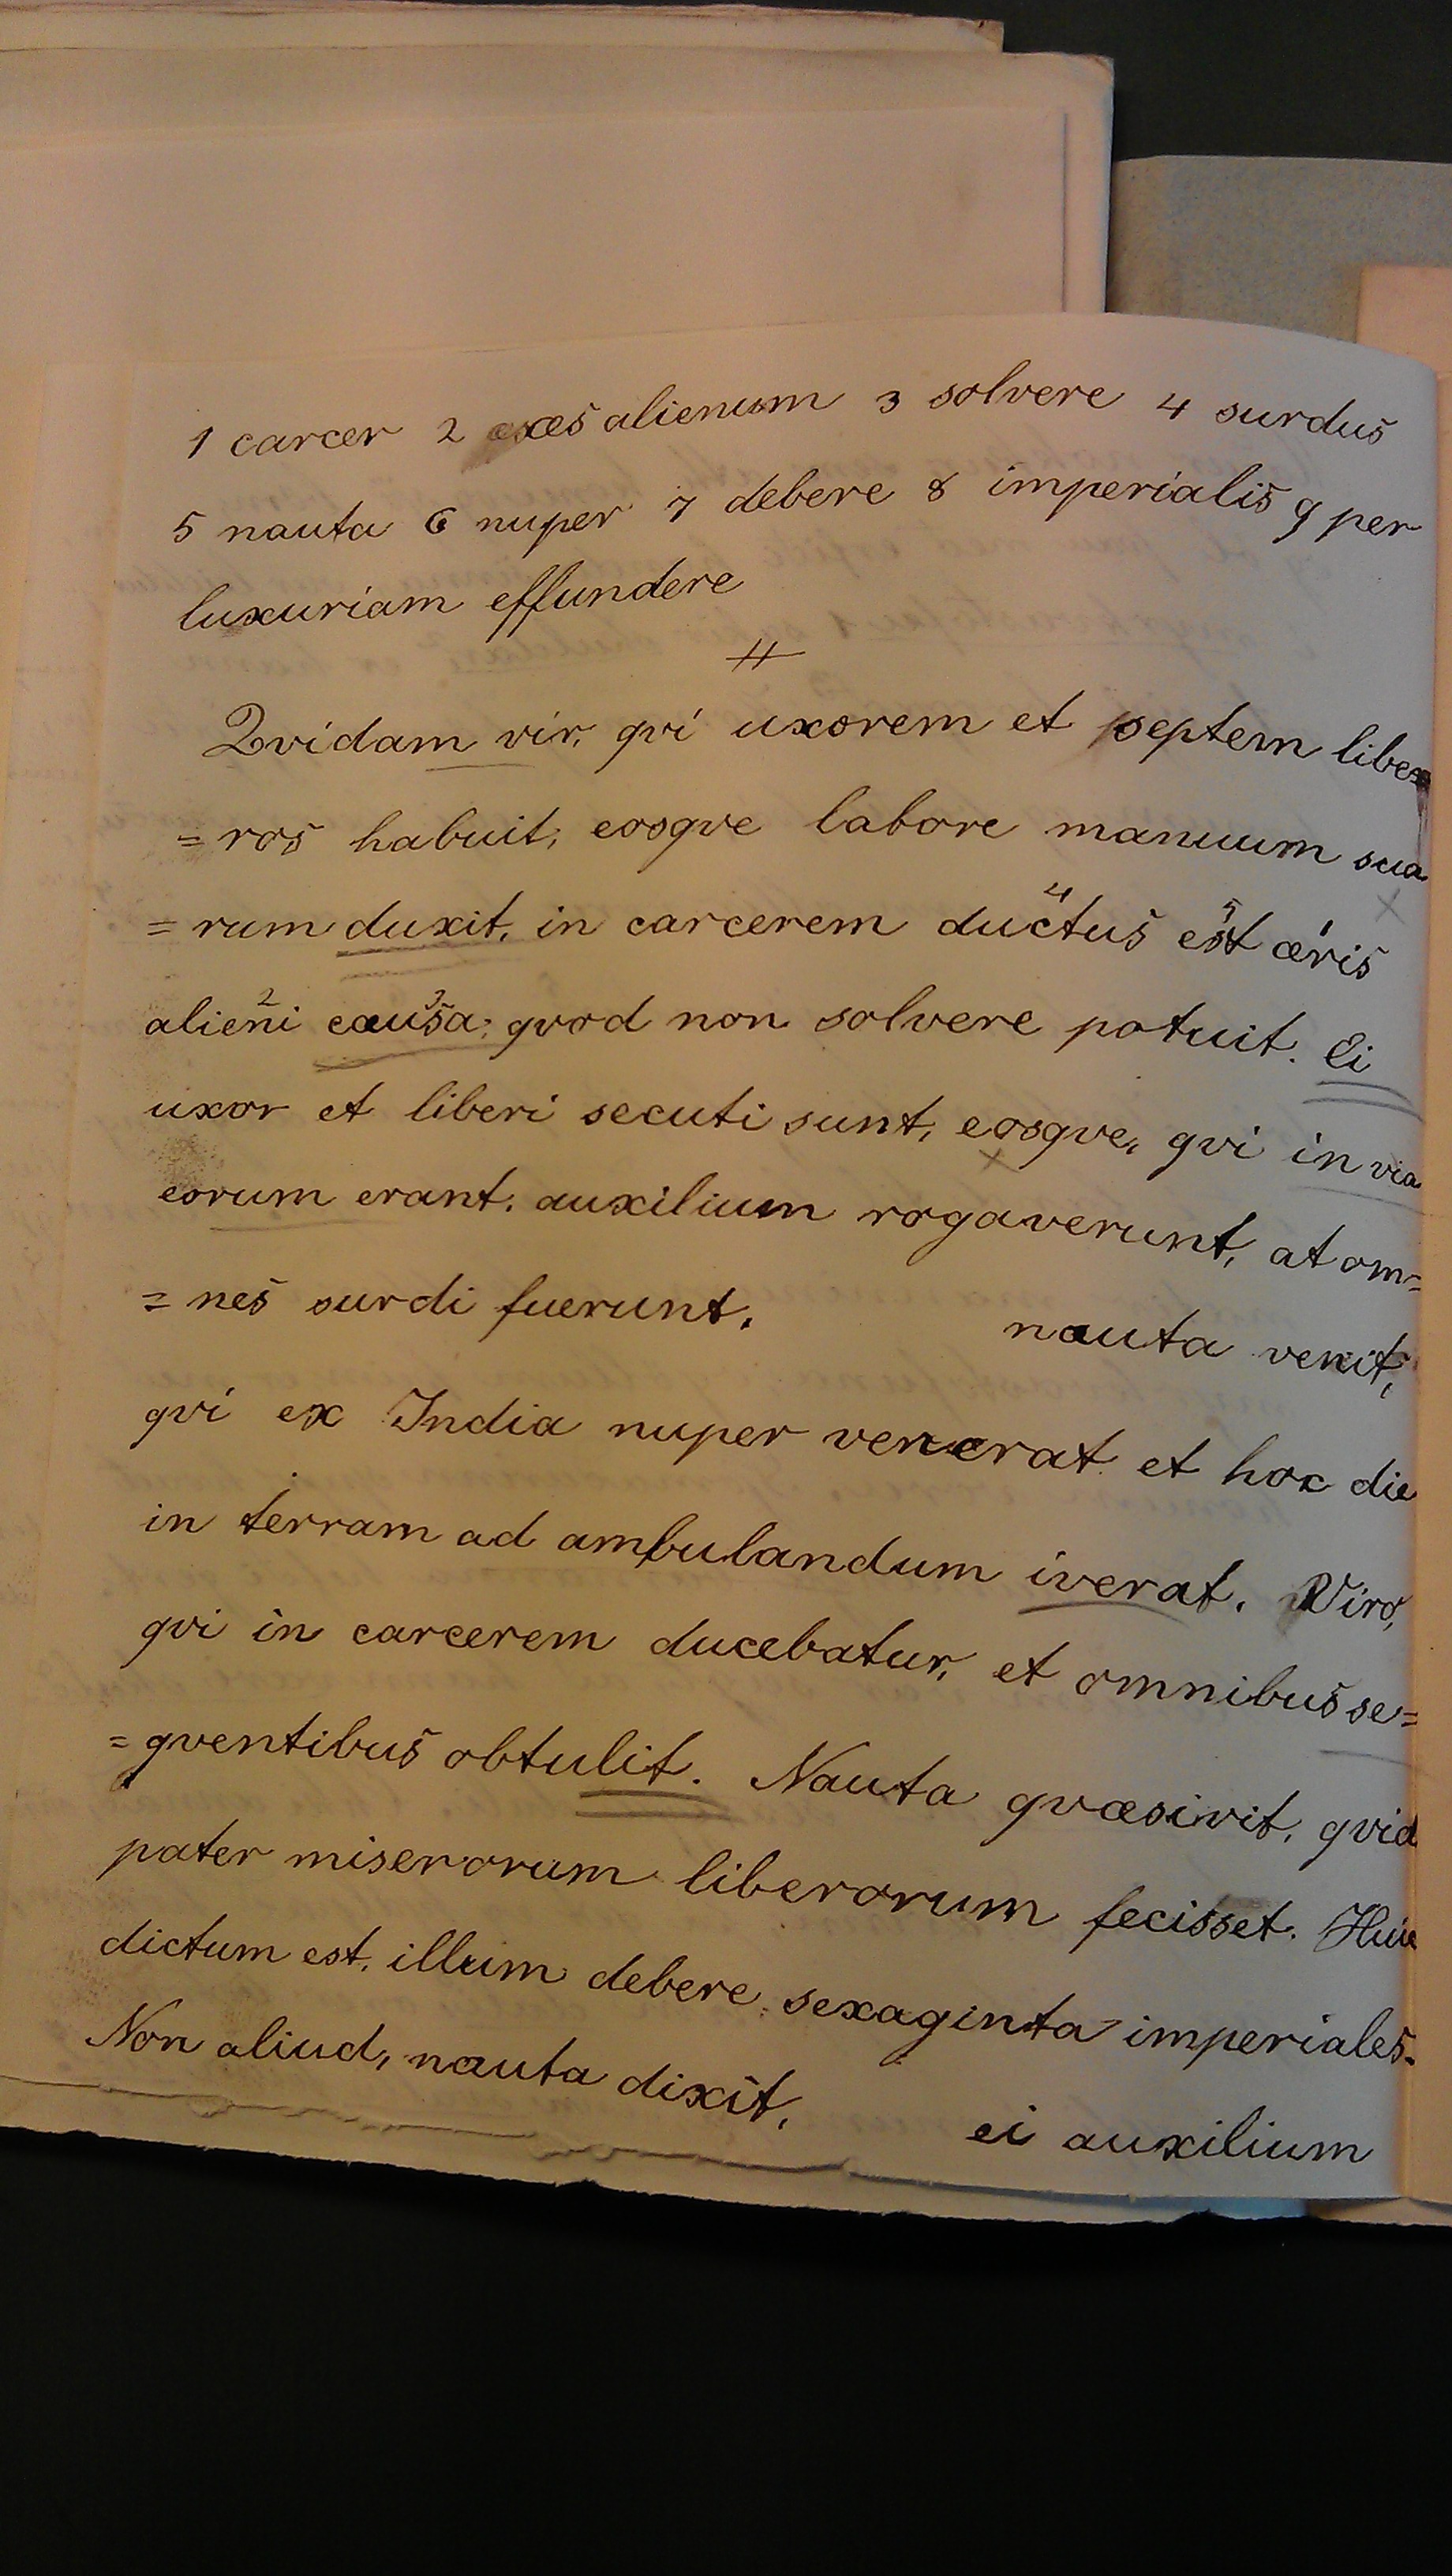 1 carcer 2 æs alienum 3 solvere 4 surdus
5 nauta 6 nuper 7 debere 8 imperialis 9 per
luxuriam effundere
Qvidam vir, qvi uxorem et septem libe=
=ros habuit, eosqve labore manuum sua
=rum duxit, in carcerem ductus est æris
alieni causa, qvod non solvere potuit. Ei
uxor et liberi secuti sunt, eosqve, qvi in via
eorum erant, auxilium rogaverunt, at om=
=nes surdi fuerunt. nauta venit,
qvi ex India nuper venerat et hoc die
in terram ad ambulandum iverat. Viro,
qvi in carcerem ducebatur, et omnibus se=
=qventibus obtulit. Nauta qvæsivit, qvid
pater miserorum liberorum fecisset. Huic
dictum est, illum debere sexaginta imperiales.
Non aliud, nauta dixit, ei auxilium